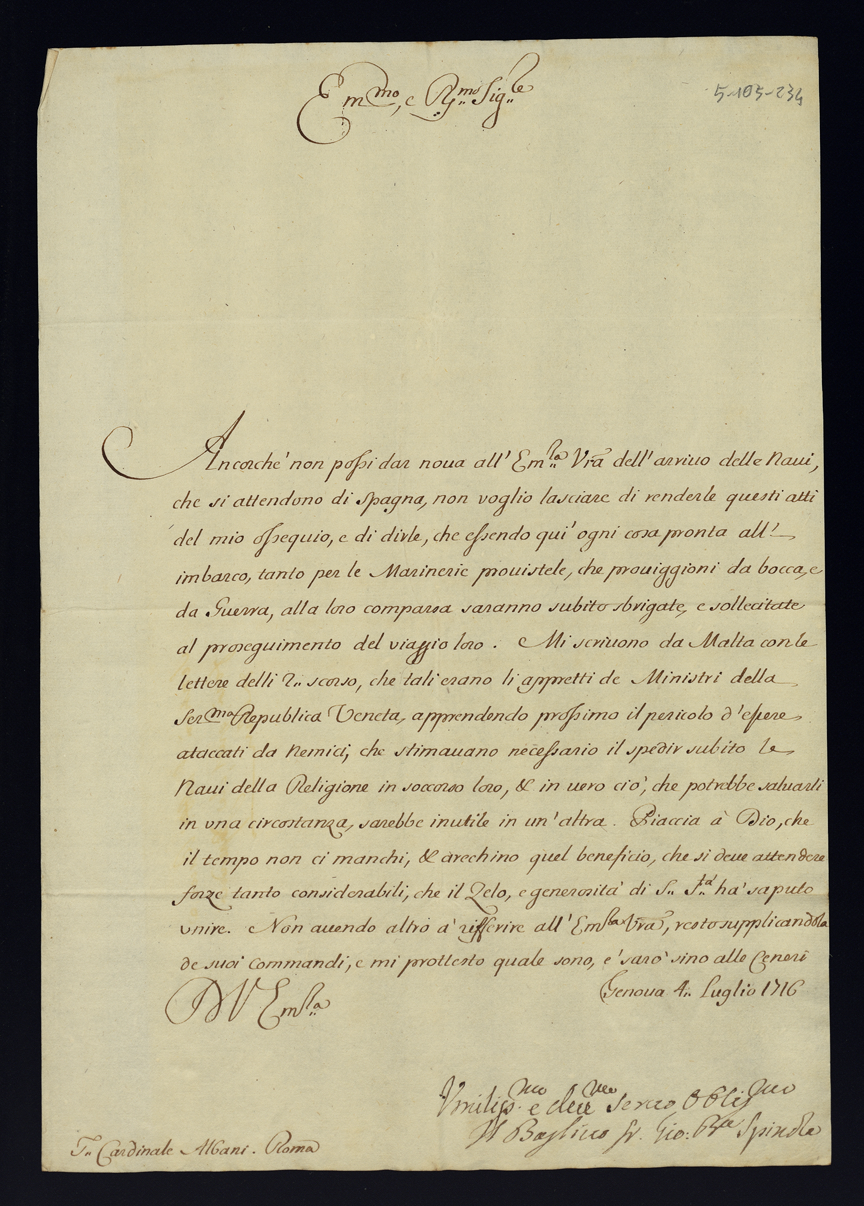 Em.mo, e R.mo Sig.re
5-103-234
Ancorche' non possi dar noua all' Em.za Vra dell' arriuo delle Naui,
che si attendono di Spagna, non voglio lasciare di renderle questi atti
del mio ossequio, e di dirle, che essendo qui' ogni cosa pronta all'
imbarco, tanto per le Marinerie prouistele, che prouiggioni da bocca, e
da Guerra, alla loro comparsa saranno subito sbrigate, e sollecitate
al proseguimento del viaggio loro. Mi scriuono da Malta con le
lettere delli 2. scorso, che tali erano li appretti de Ministri della
Ser.ma Republica Veneta, apprendendo prossimo il pericolo d'essere
ataccati da Nemici, che stimauano necessario il spedir subito le
Naui della Religione in soccorso loro, & in uero cio', che potrebbe saluarli
in vna circostanza, sarebbe inutile in un' altra. Piaccia à Dio, che
il tempo non ci manchi, & arechino quel beneficio, che si deue attendere
forze tanto considerabili, che il Zelo, e generosita' di S. S.tà ha' saputo
vnire. Non auendo altro à rifferire all' Em.za Vra, resto supplicandola
de suoi commandi, e mi prottesto quale sono, e' saro' sino alle Ceneri
D V Em.za
Genoua 4. Luglio 1716
Vmiliss.mo e deu.mo seruo Oblig.mo
Il Baglìuo fr. Gio: B.ta Spinola
Cardinale Albani. Roma